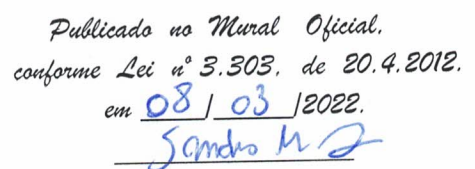 Publicado no Mural Oficial,
conforme Lei nº 3.303, de 20.4.2012.
em 08 / 03 /2022.
Sandro M